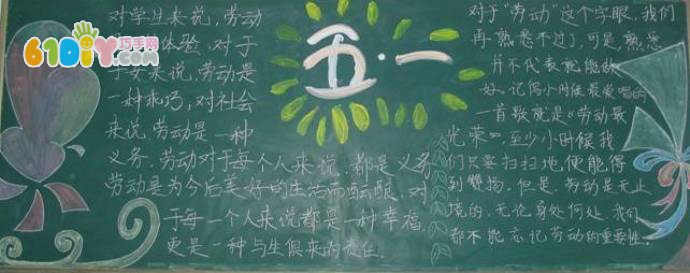 对学生来说，劳动
体验，对于
子女来说，劳动是
一种乖巧，对社会
来说，劳动是一种
义务，劳动对于每个人来说，都是义务
劳动是为今后美好的生活而 对
于每一个人来说都是一种幸福，
更是一种与生俱来的责任。
610DIY巧手网
五·一
对于“劳动”这个字眼，我们
再熟悉不过了，可是，熟悉
并不代表就能做
好。记得小时候最爱唱的
一首歌就是“劳动最
光荣”，至少小时候我
们只要扫扫地便能得
到赞扬。但是，劳动是无止
境的，无论身处何处，我们
都不能忘记劳动的重要性！